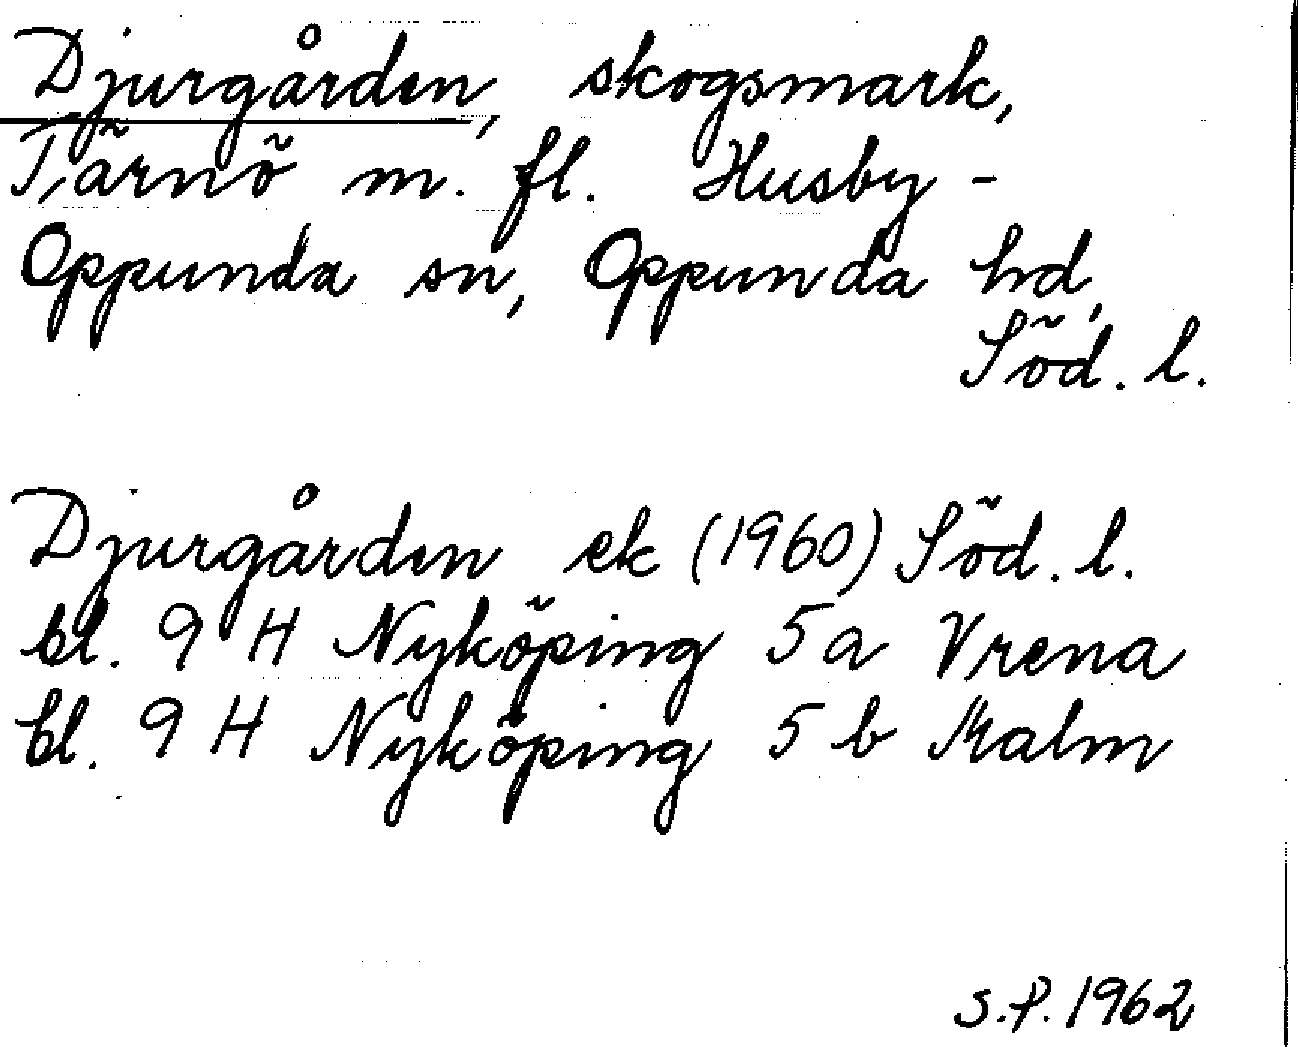 Djurgården, skogsmark,
Tärnö m. fl. Husby-
Oppunda sn, Oppunda hd,
Söd. l.
Djurgården ek (1960) Söd. l.
bl. 9 H Nyköping 5 a Vrena
bl. 9 H Nyköping 5 b Malm
S.P. 1962